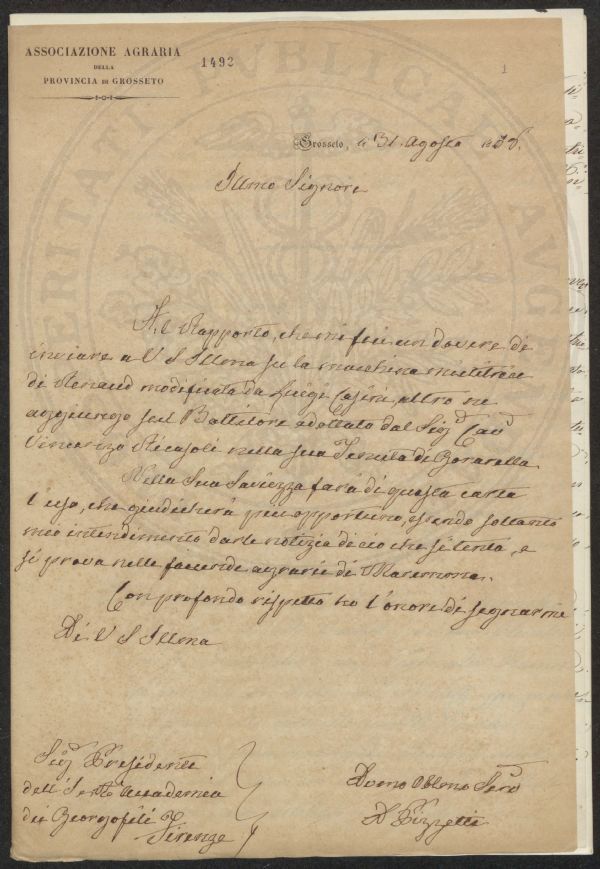 ASSOCIAZIONE AGRARIA
DELLA
PROVINCIA DI GROSSETO
1492
1
Grosseto, li 31. Agosto 1858.
Illmo Signore
Al Rapporto, che mi feci un dovere di
inviare a V S Illma su la macchina mietitrice
di Renaud modificata da Luigi Casini, altro ne
aggiungo sul Battitore adottato dal Sigr Cavr
Vincenzo Ricasoli nella sua Tenuta di Gorarella.
Nella Sua Saviezza farà di questa carta
l'uso, che giudicherà più opportuno, essendo soltanto
mio intendimento darle notizia di ciò che si tenta, e
si prova nelle faccende agrarie di Maremma.
Con profondo rispetto ho l'onore di segnarmi
Di V S Illma
Sigr Presidente
dell'I e R Accademia
dei Georgofili
Firenze
Devmo Obbmo Serv
A Pizzetti
VERITATI PUBLICAE AUGE